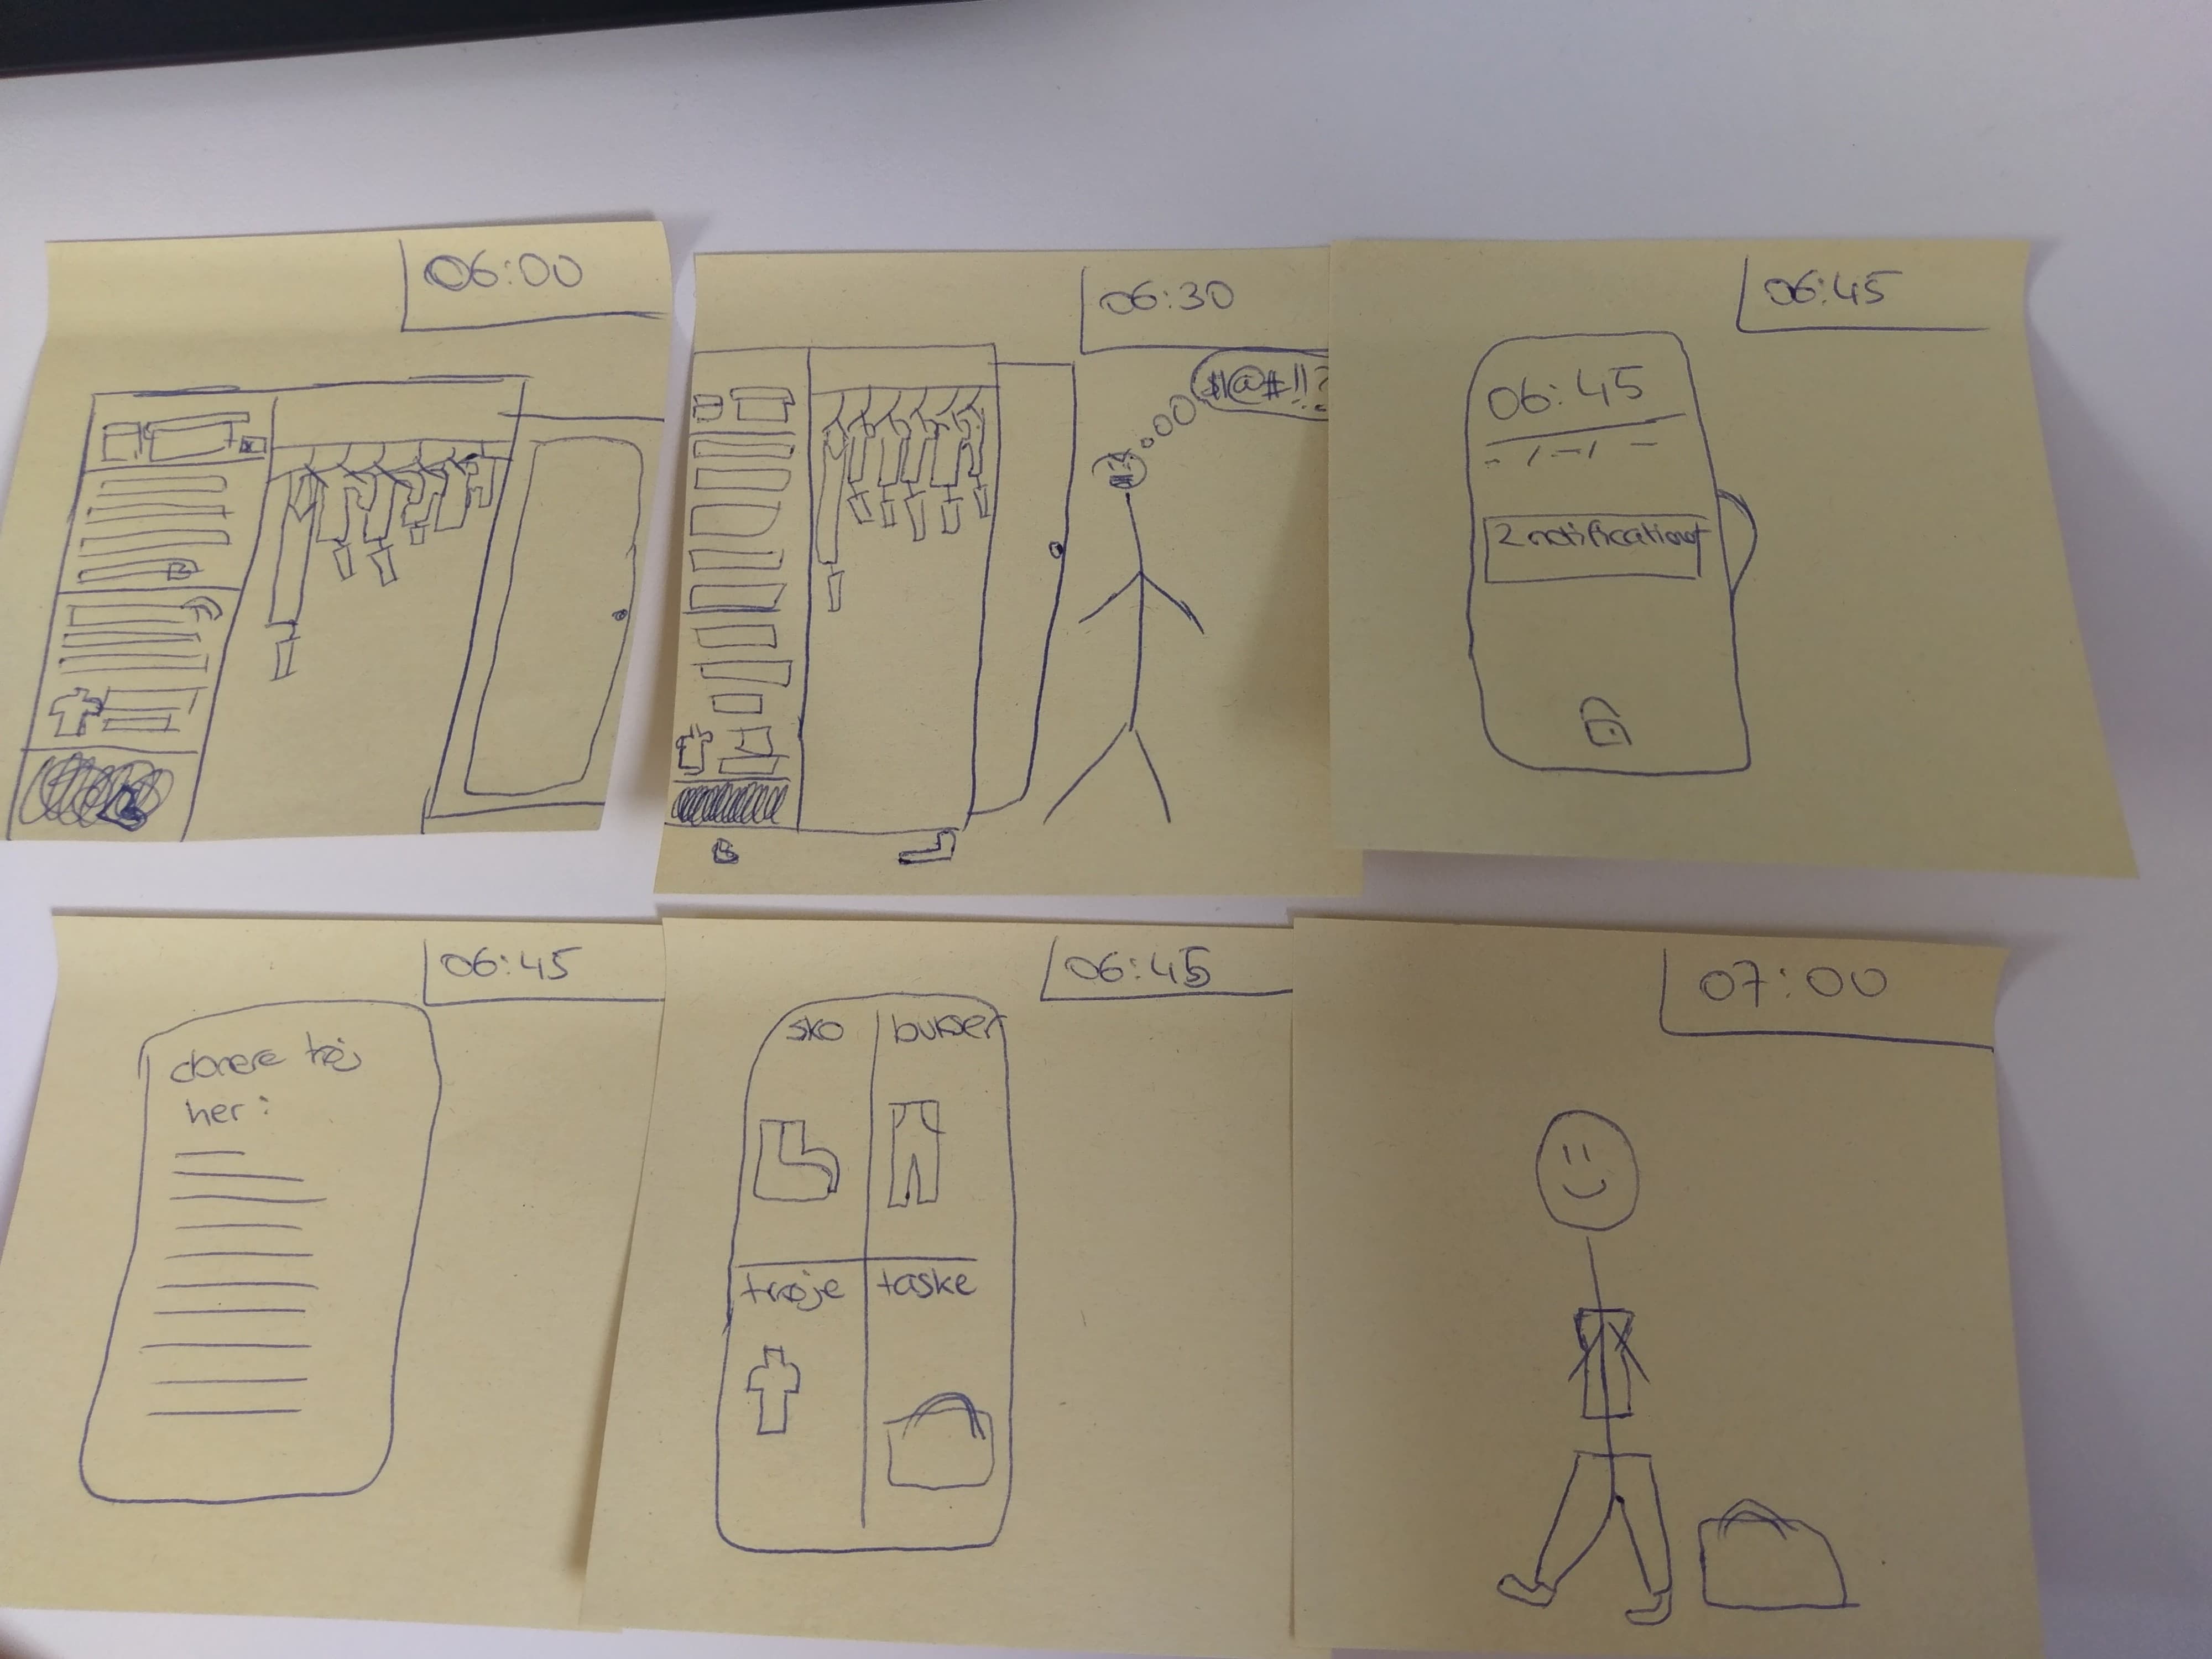 06:00
06:30
$!@#!!?
06:45
06:45
2 notification
06:45
donere tøj
her:
06:45
sko
bukser
trøje
taske
07:00